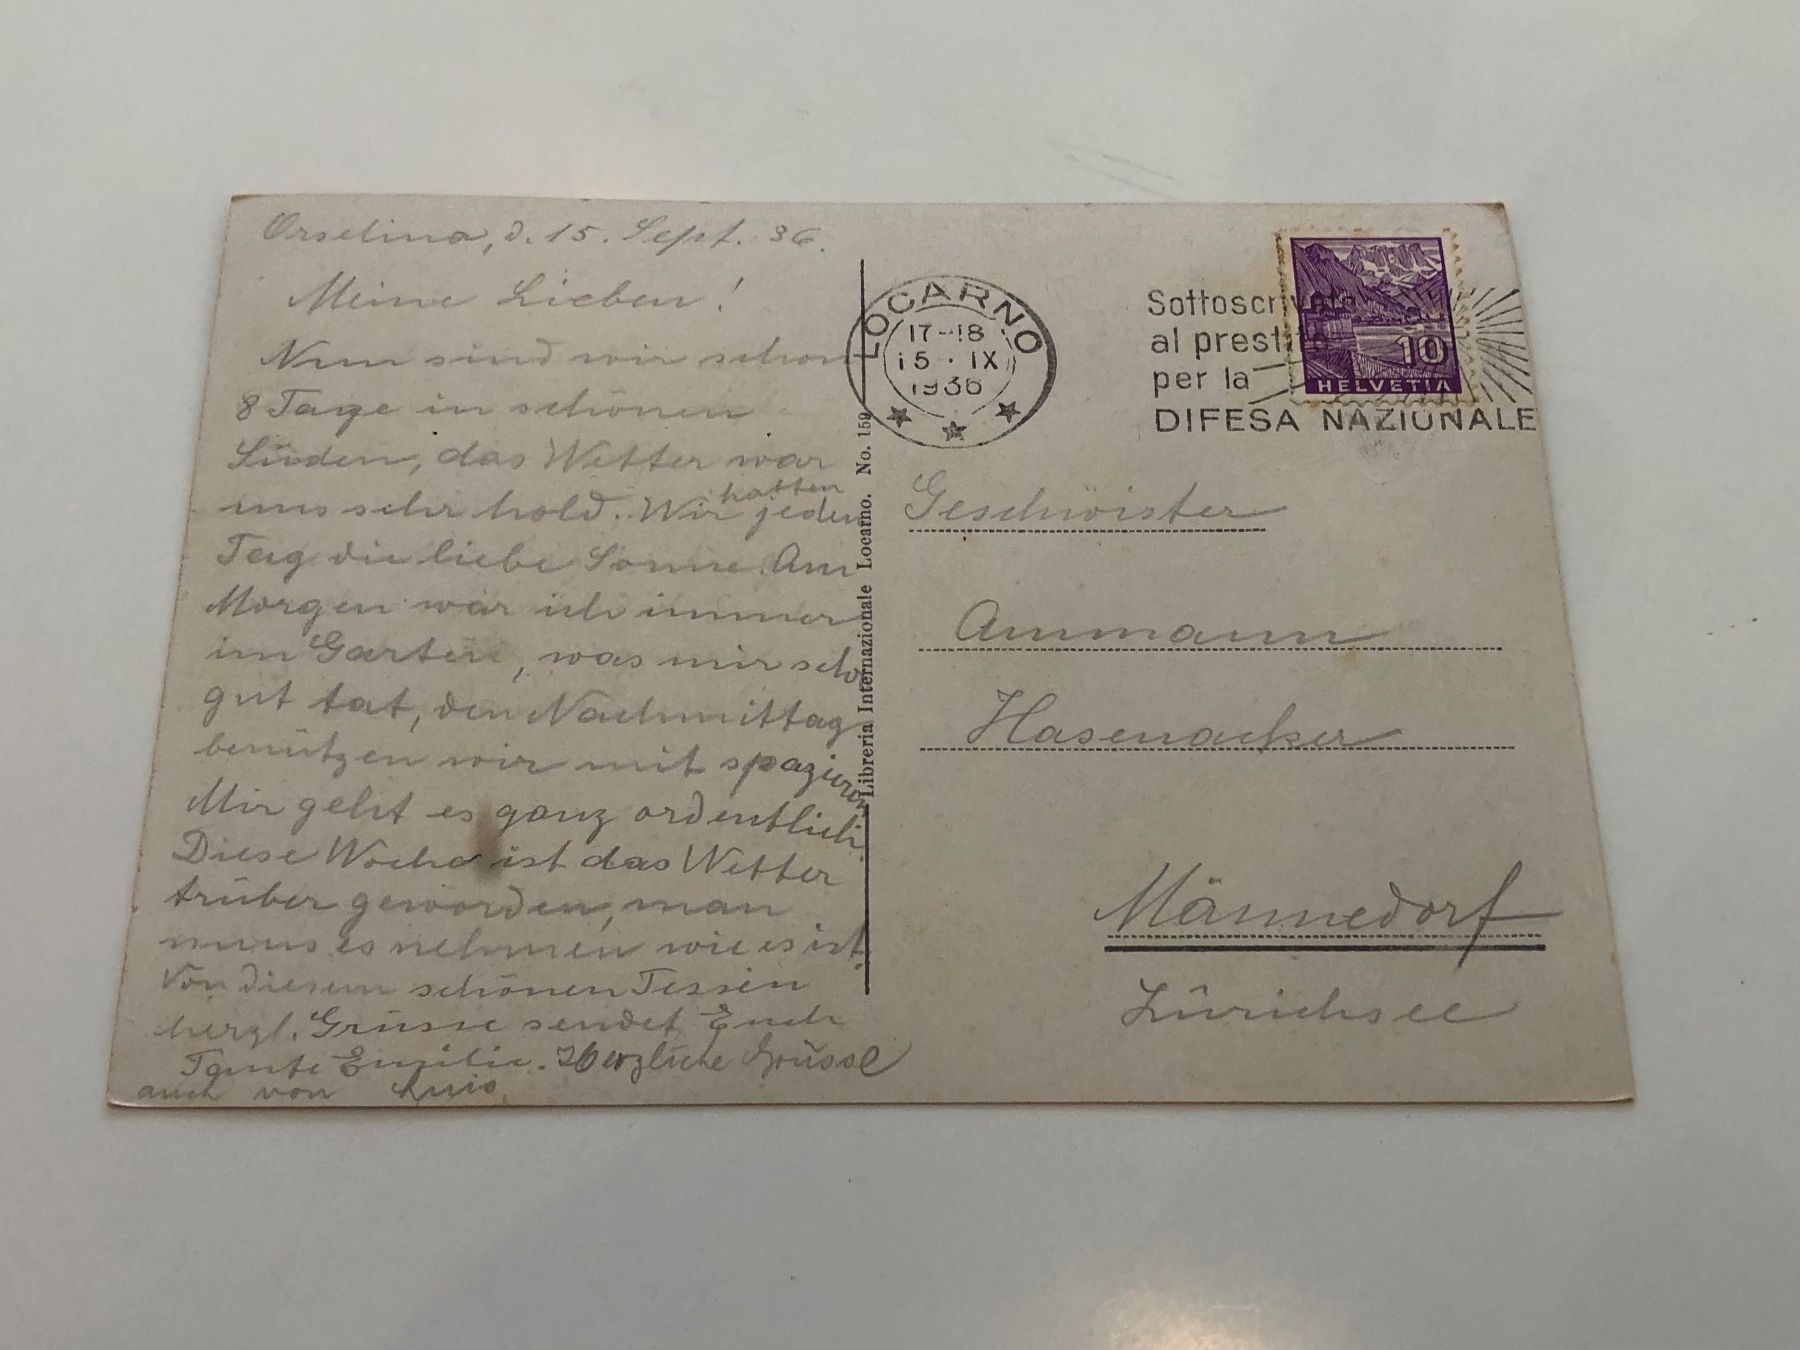 Orselina, d. 15. Sept. 36.
Meine Lieben!
Nun sind wir schon
8 Tage in schönen
Süden, das Wetter war
uns sehr hold. Wir hatten jeden
Tag die liebe Sonne. Am
Morgen war ich immer
im Garten, was mir sehr
gut tat, den Nachmittag
benützen wir mit spazieren
Mir geht es ganz ordentlich.
Diese Woche ist das Wetter
trüber geworden, man
muss es nehmen wie es ist.
Von diesem schönen Tessin
herzl. Grüsse sendet Euch
Tante Emilie. Herzliche Grüsse
auch von Luis
Libreria Internazionale Locarno. No. 159
LOCARNO
17-18
15·IX
1936
Sottoscrivete
al prestito
per la
DIFESA NAZIONALE
10
HELVETIA
Geschwister
Ammann
Hasenacker
Männedorf
Zürichsee